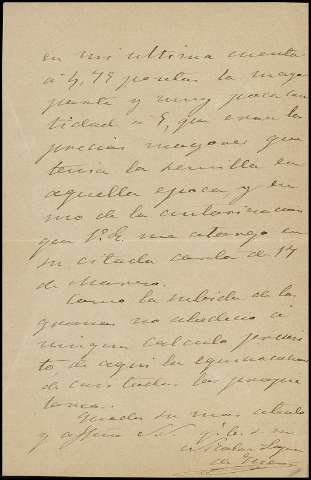 en mi ultima cuenta
á 4, 75 pesetas la mayor
parte y muy poca can
tidad a 5, que eran los
precios mayores que
tenia la semilla en
aquella epoca, y en
uso de la autorizacion
que Vd. me otorgo en
su citada carta de 14
de Marzo.
Como la subida de los
granos no obedece á
ningun calculo
de aqui la equivocacion
de
Queda su mas atento
y affmo S.S. q. b. s. m.
Nicolas
de